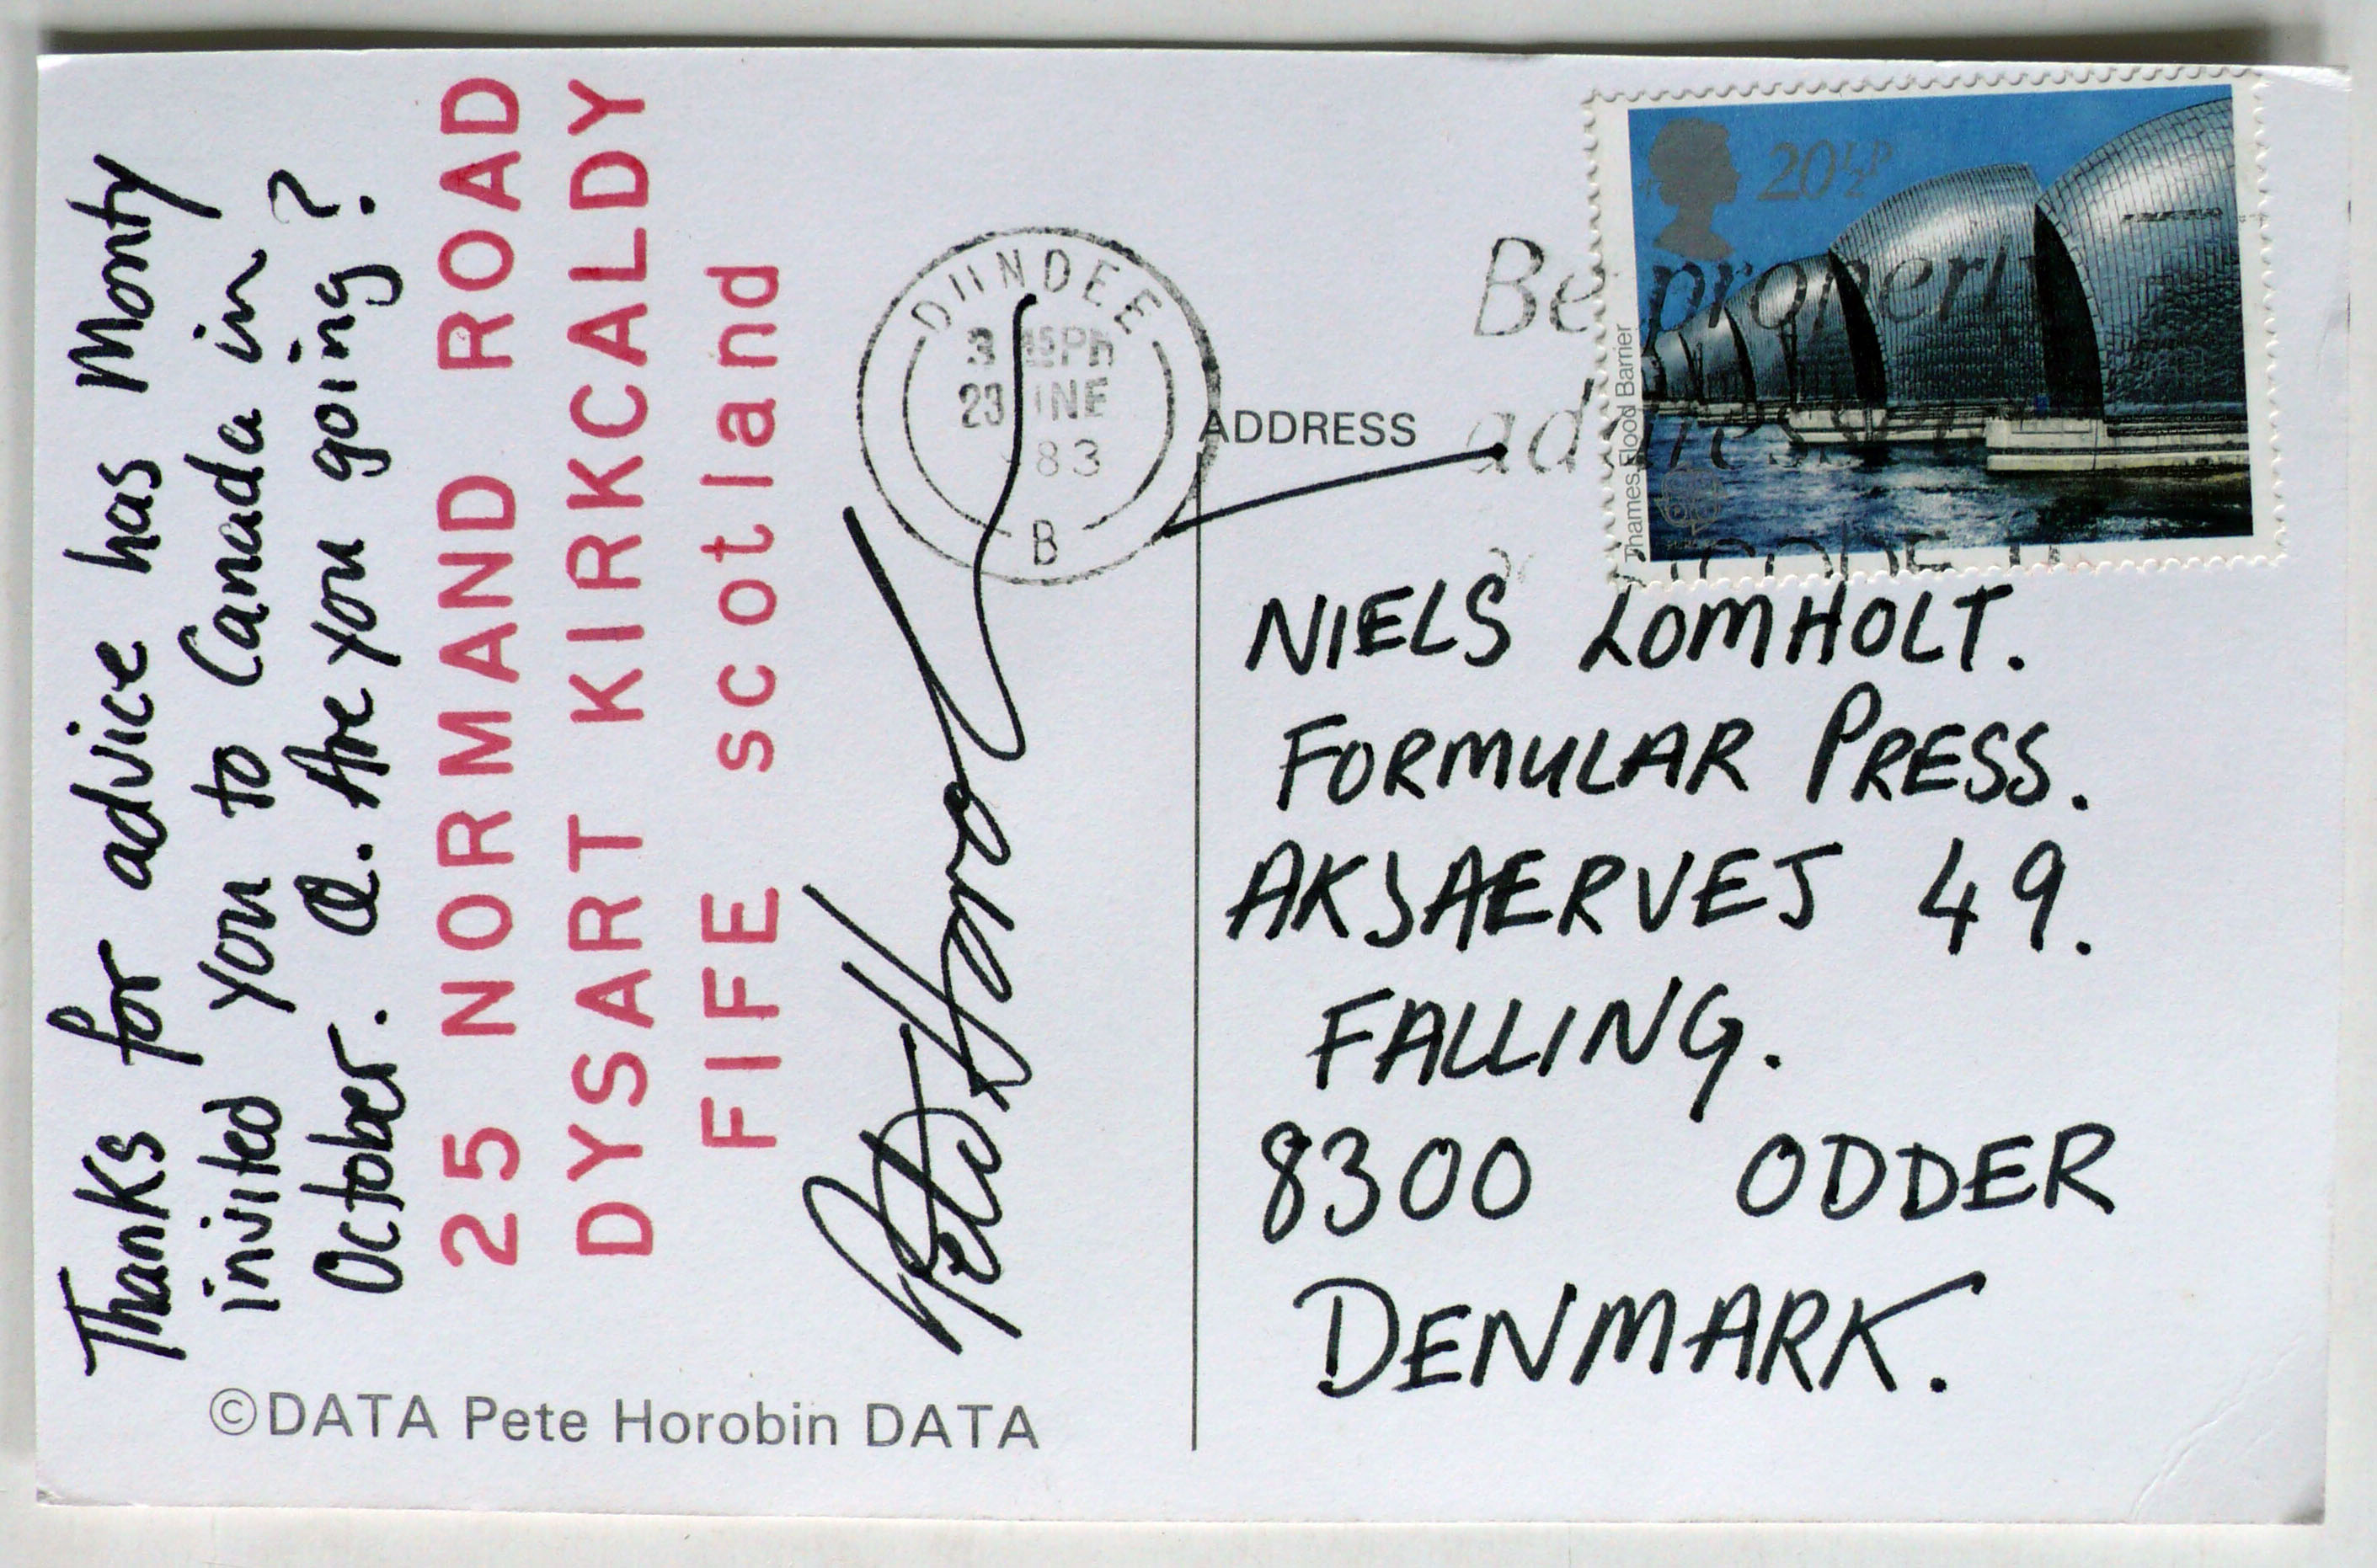 Thanks for advice has Monty
invited you to Canada in
October. Q. Are you going?
25 NORMAND ROAD
DYSART KIRKCALDY
FIFE scotland
Pete Horobin
©DATA Pete Horobin DATA
DUNDEE
83
B
ADDRESS
Be properly
addressed
20½P
Thames Flood Barrier
NIELS LOMHOLT.
FORMULAR PRESS.
AKSAERVEJ 49.
FALLING.
8300 ODDER
DENMARK.